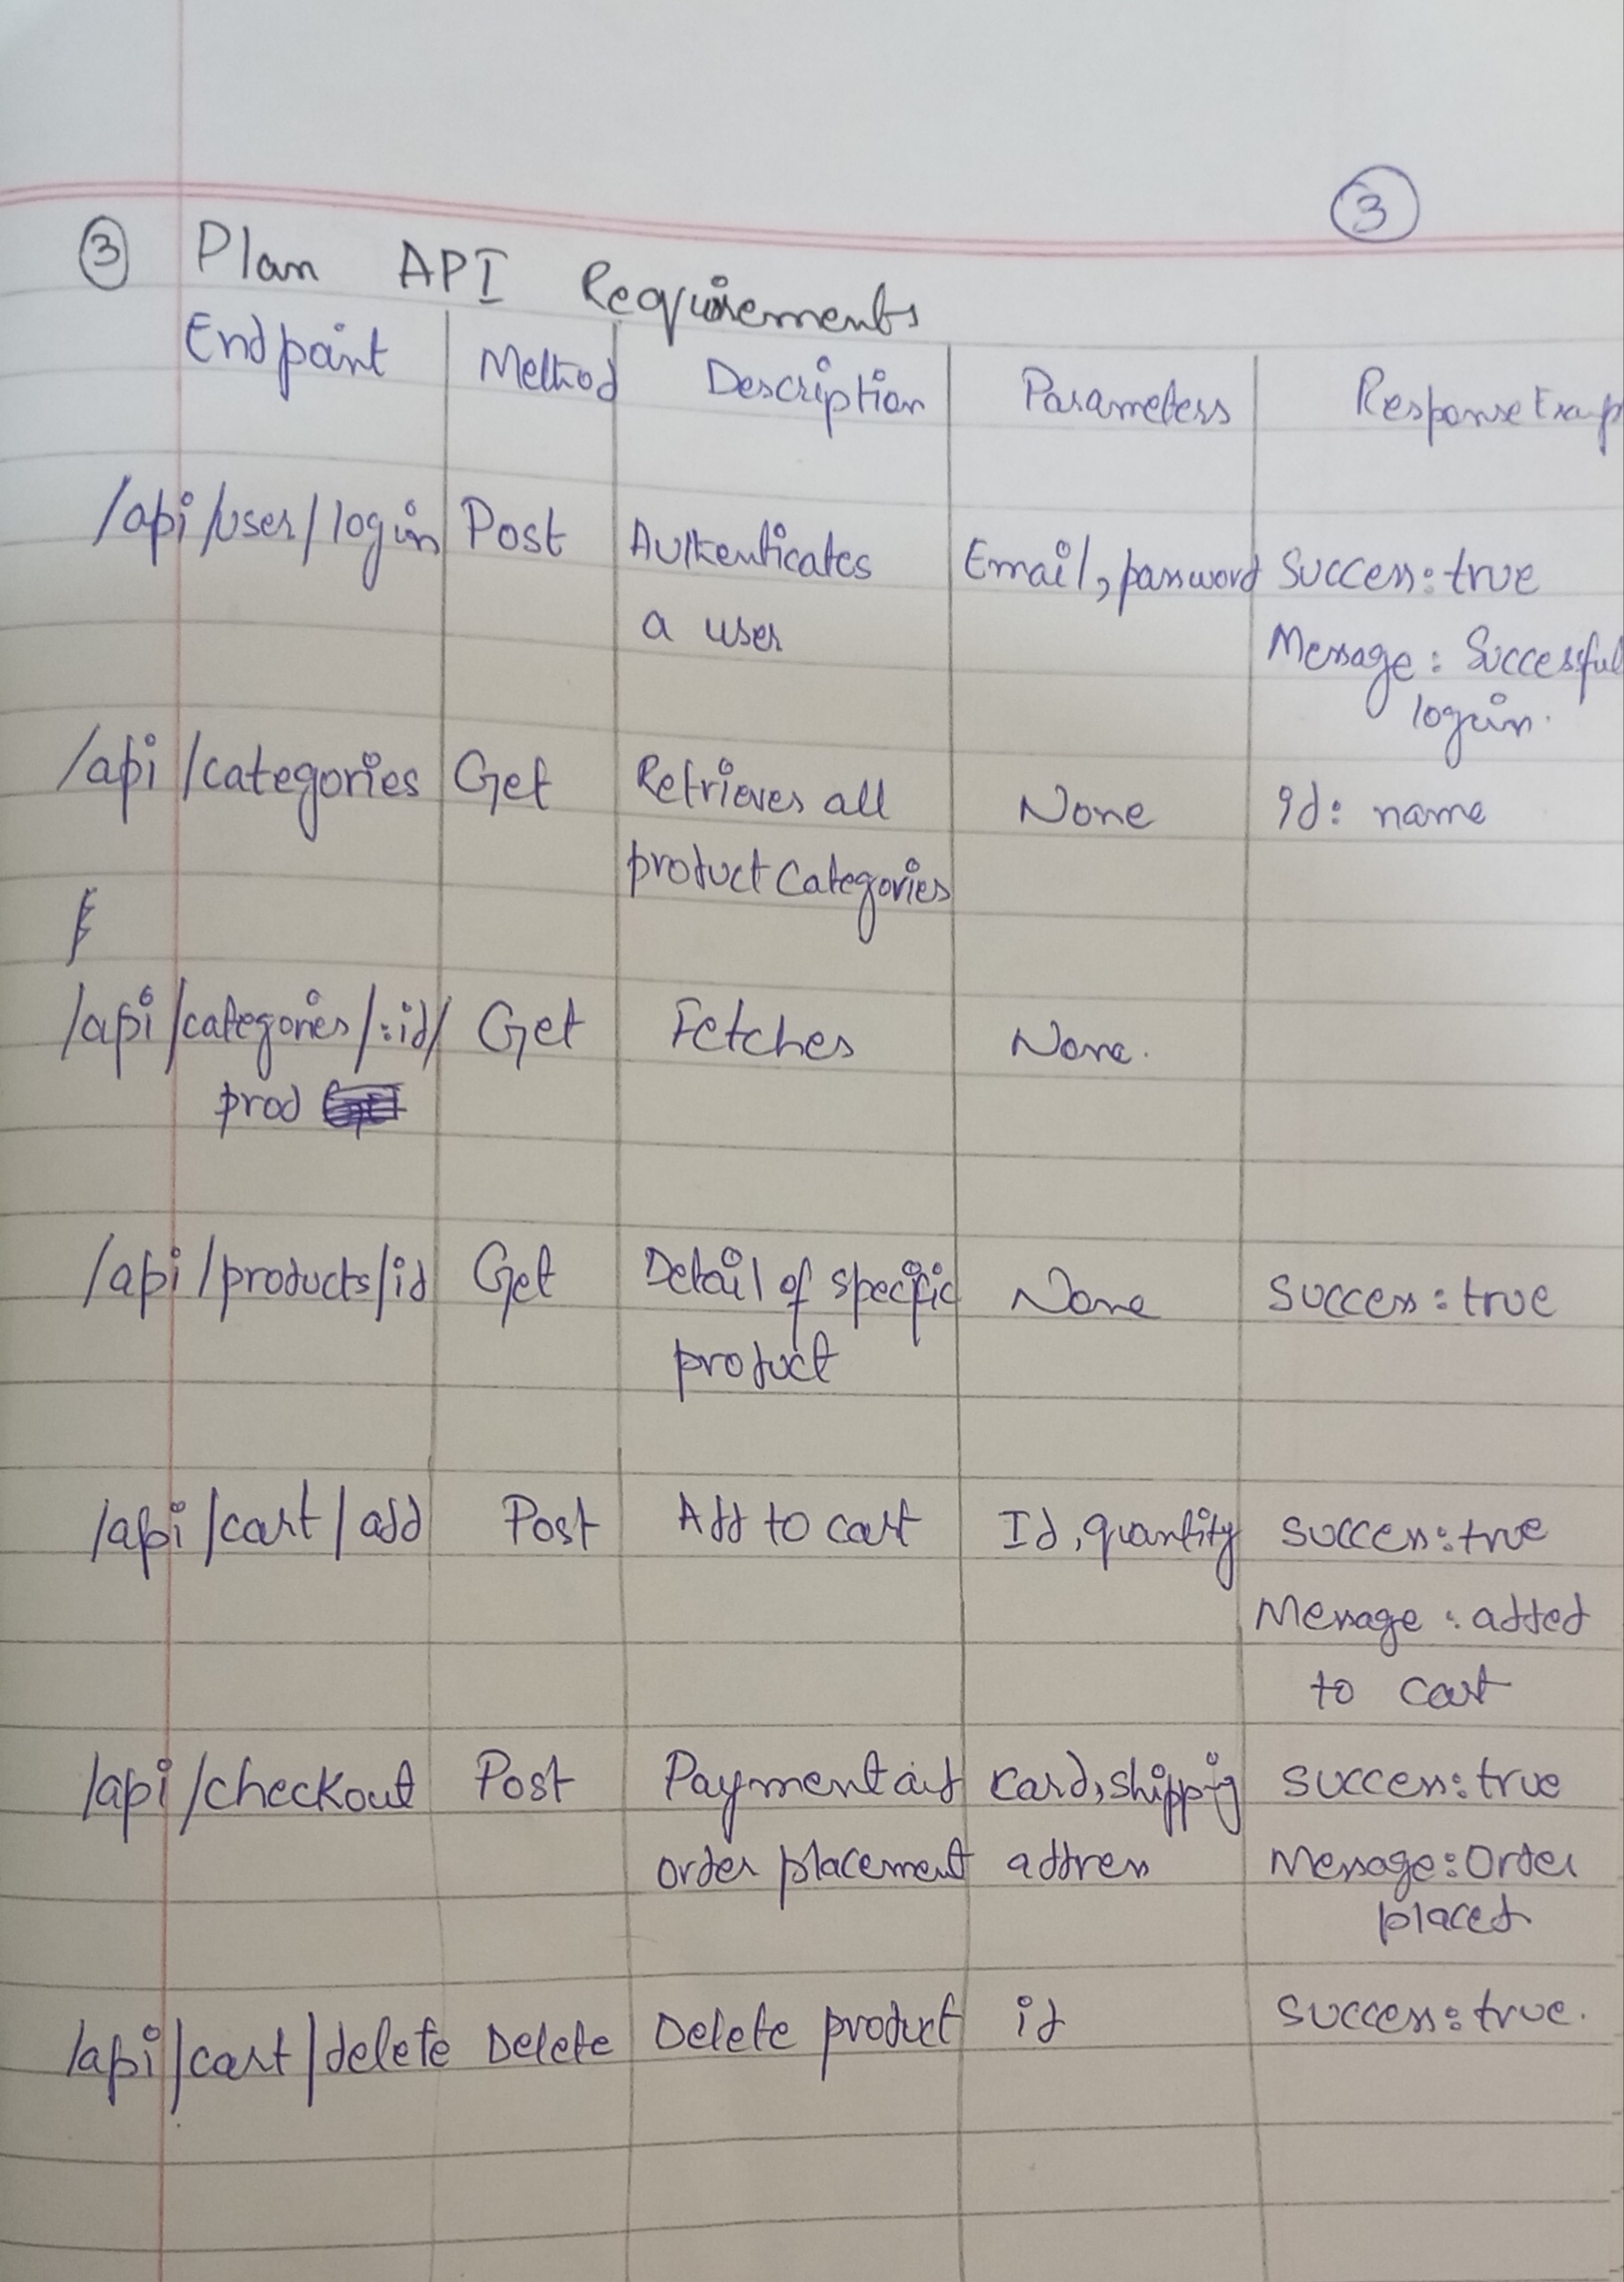 3
3 Plan API Requirements
Endpoint Method Description Parameters Response Examp
/api/user/login Post Authenticates Email, password Success: true
a user Message: Successful
login.
/api/categories Get Retrieves all None Id: name
product Categories
/api/categories/:id/ Get Fetches None.
prod
/api/products/id Get Detail of specific None Success: true
product
/api/cart/add Post Add to cart Id, quantity Success: true
Message: added
to cart
/api/checkout Post Payment and card, shipping Success: true
order placement address Message: Order
placed
/api/cart/delete Delete Delete product id Success: true.